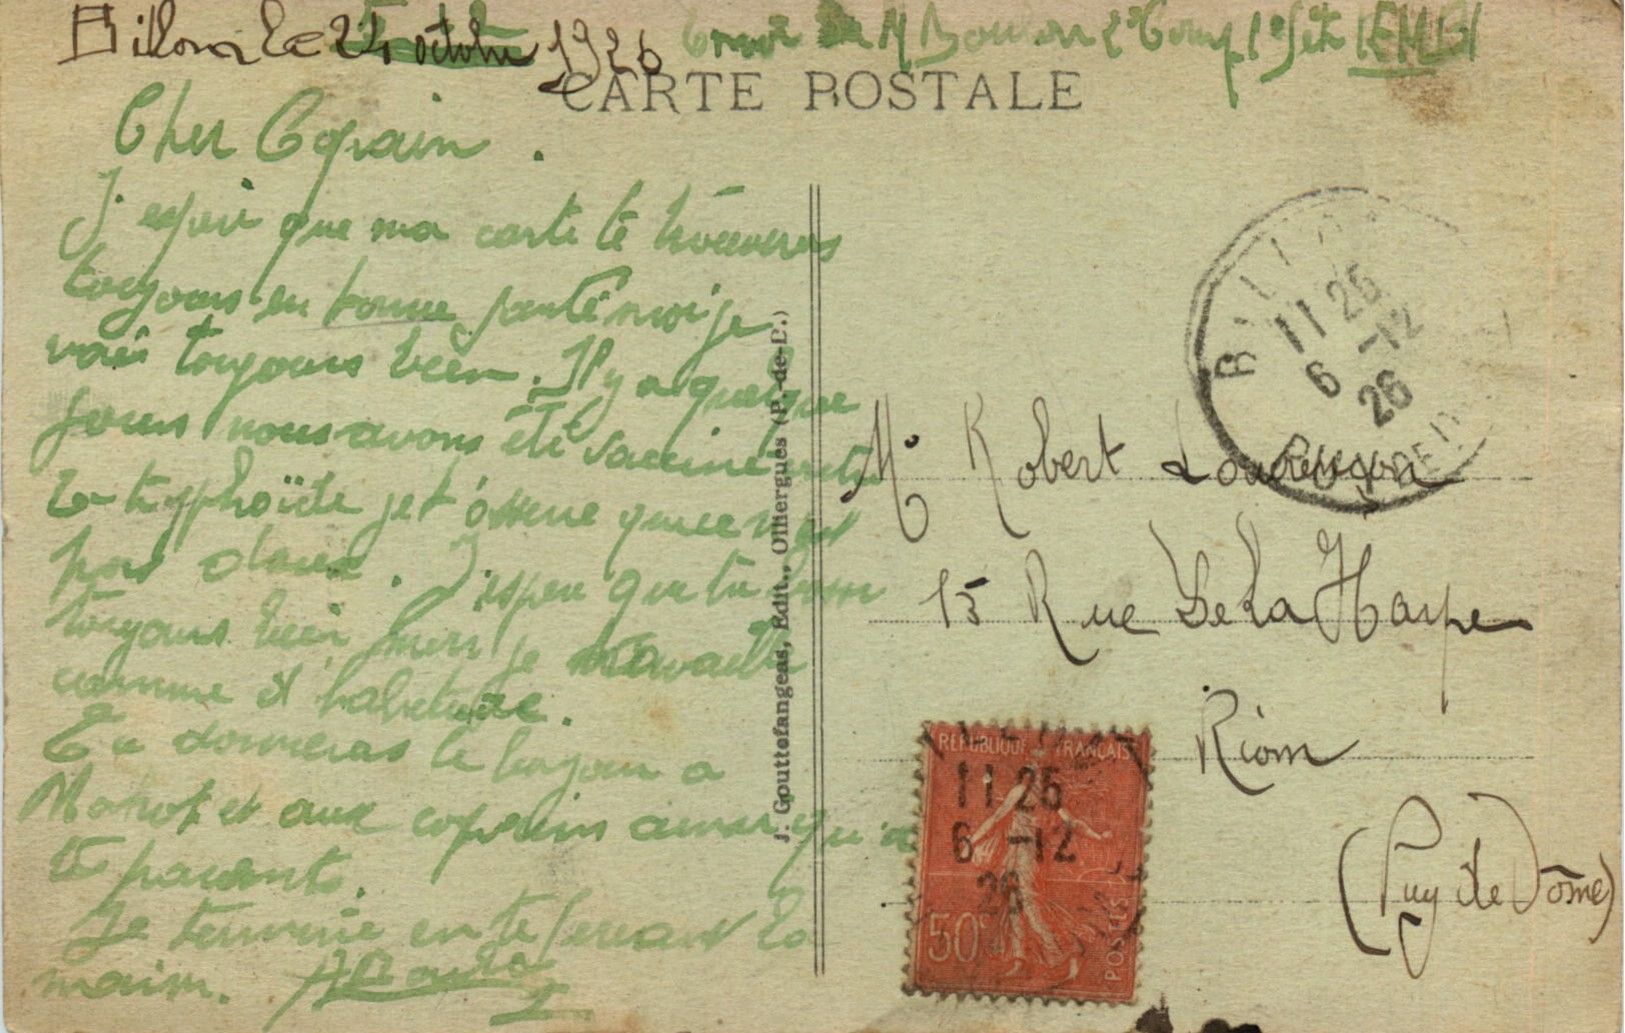 Billom Le 24 octobre 1926
Envoi de M
CARTE POSTALE
Cher Copain.
J'espere que ma carte te trouveras
toujours en bonne santé moi je
vais toujours bien. Il y a quelque
jours nous avons été vacciné
la typhoïde je t'assure que ce n'est
pas doux. J'esper que tu
toujours bien je travaille
comme d'habitude.
Tu donneras le bonjour a
et aux copains ainsi qu'a
tes parents.
Je termine en te serrant la
main.
J. Gouttefangeas, Edit., Olliergues (P.-de-D.)
BILLOM
11 25
6 -12
26
Mr Robert
15 Rue De La Harpe
Riom
(Puy de Dôme)
REPUBLIQUE FRANCAISE
11 25
6 -12
26
50c
POSTES